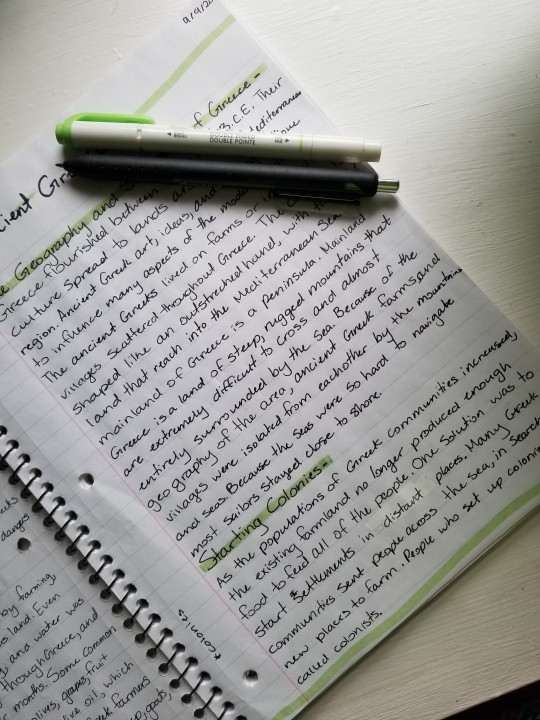 of Greece-
B.C.E. Their
Mediterranean
DOUBLE POINTE
Geography and
Greece flourished between
culture spread to lands
region. Ancient Greek art, ideas, and
to influence many aspects of the
The ancient Greeks lived on farms or
villages scattered throughout Greece. The
shaped like an outstreched hand, with
land that reach into the Mediterranean Sea.
mainland of Greece is a Peninsula. Mainland
Greece is a land of steep, rugged mountains that
are extremely difficult to cross and almost
entirely surrounded by the sea. Because of the
geography of the area, ancient Greek farms and
villages were isolated from eachother by the mountains
and seas. Because the seas were so hard to navigate
most sailors stayed close to shore.
Starting Colonies-
As the populations of Greek communities increased,
the existing farmland no longer produced enough
food to feed all of the people. One solution was to
start settlements in distant places. Many Greek
communities sent people across the sea, in search
new places to farm. People who set up
called colonists.
*colonies
dangers
by farming,
land. Even
and water was
though Greece, and
months. Some common
olives, grapes, fruit
olive oil, which
farmers
goats,